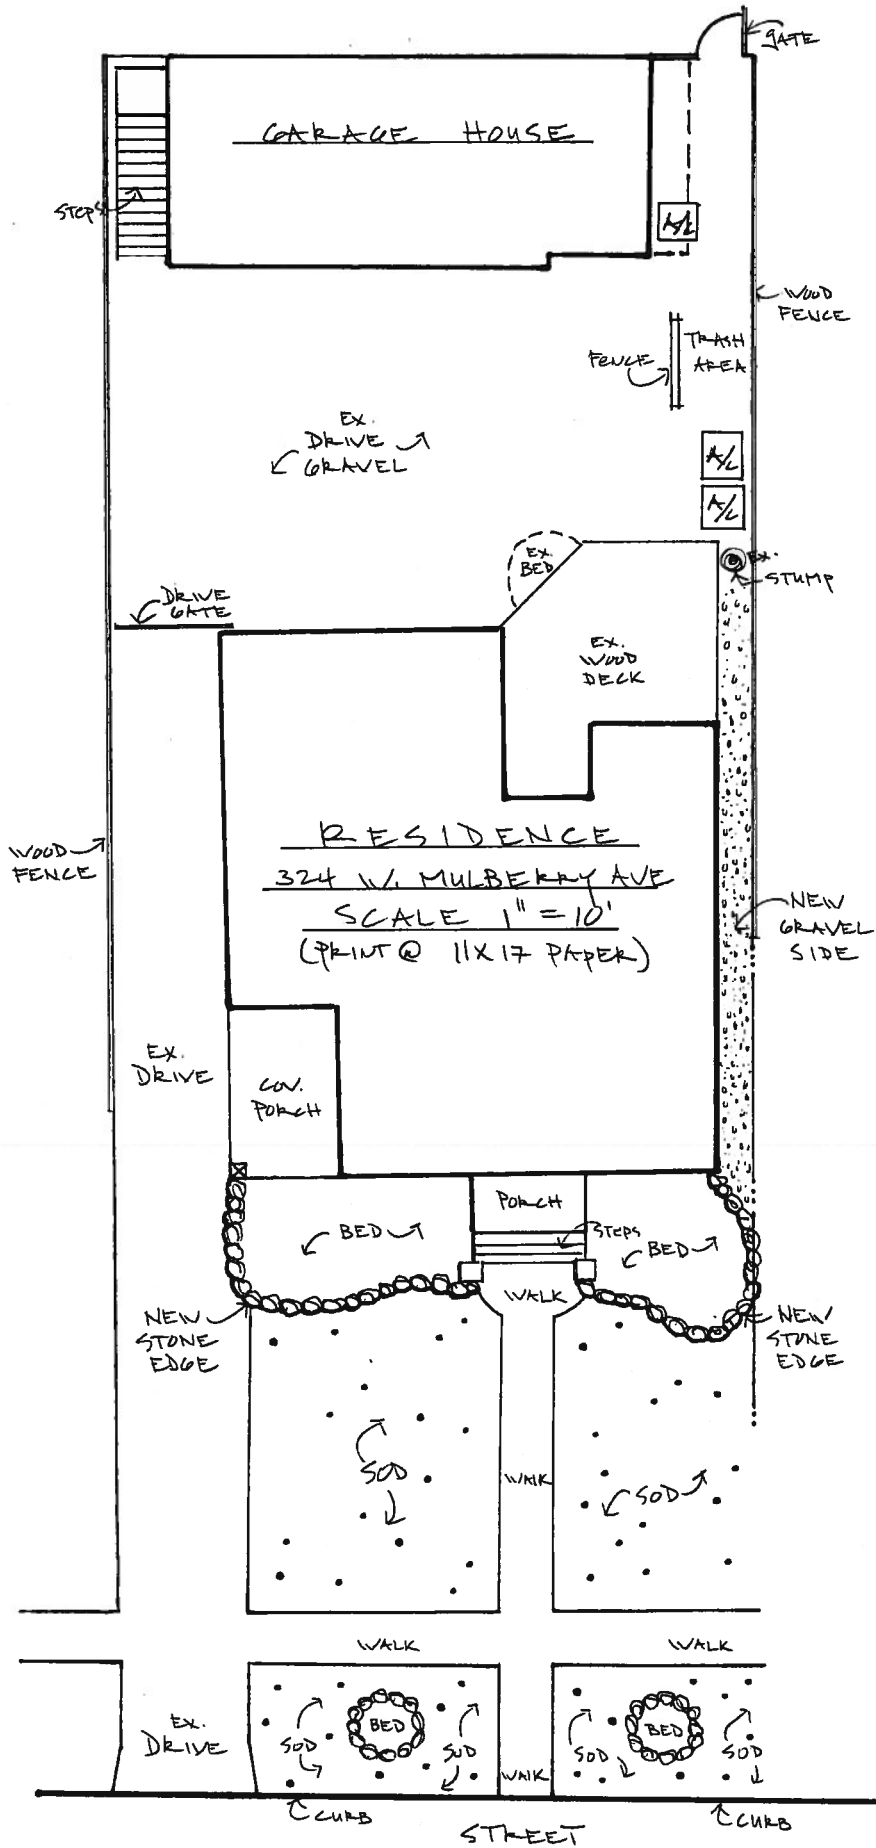 GATE
GARAGE HOUSE
STEPS
A/C
WOOD
FENCE
TRASH
AREA
FENCE
EX.
DRIVE
GRAVEL
A/C
A/C
EX.
BED
EX.
STUMP
DRIVE
GATE
EX.
WOOD
DECK
RESIDENCE
324 W. MULBERRY AVE
SCALE 1" = 10'
(PRINT @ 11X17 PAPER)
WOOD
FENCE
NEW
GRAVEL
SIDE
EX.
DRIVE
COV.
PORCH
PORCH
STEPS
BED
BED
WALK
NEW
STONE
EDGE
NEW
STONE
EDGE
SOD
WALK
SOD
WALK
WALK
EX.
DRIVE
SOD
BED
SOD
WALK
SOD
BED
SOD
CURB
CURB
STREET